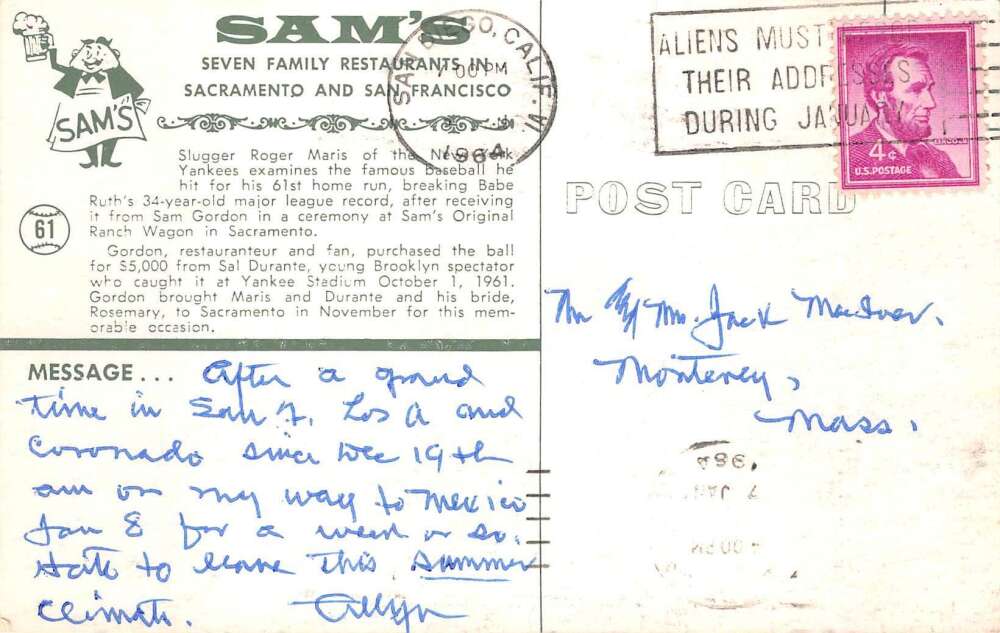 SAM'S
SEVEN FAMILY RESTAURANTS IN
SACRAMENTO AND SAN FRANCISCO
SAM'S
Slugger Roger Maris of the New York
Yankees examines the famous baseball he
hit for his 61st home run, breaking Babe
Ruth's 34-year-old major league record, after receiving
it from Sam Gordon in a ceremony at Sam's Original
Ranch Wagon in Sacramento.
61
Gordon, restauranteur and fan, purchased the ball
for $5,000 from Sal Durante, young Brooklyn spectator
who caught it at Yankee Stadium October 1, 1961.
Gordon brought Maris and Durante and his bride,
Rosemary, to Sacramento in November for this mem-
orable occasion.
MESSAGE... After a grand
time in San F, Los A and
Coronado since Dec 19th
am on my way to Mexico
Jan 8 for a week or so.
Hate to leave this summer
climate. Allyn
SAN DIEGO, CALIF.
7 00 PM
1964
ALIENS MUST
THEIR ADDRESSES
DURING JANUARY
4¢
U.S. POSTAGE
POST CARD
Mr & Mrs. Jack MacIver.
Monterey,
Mass.